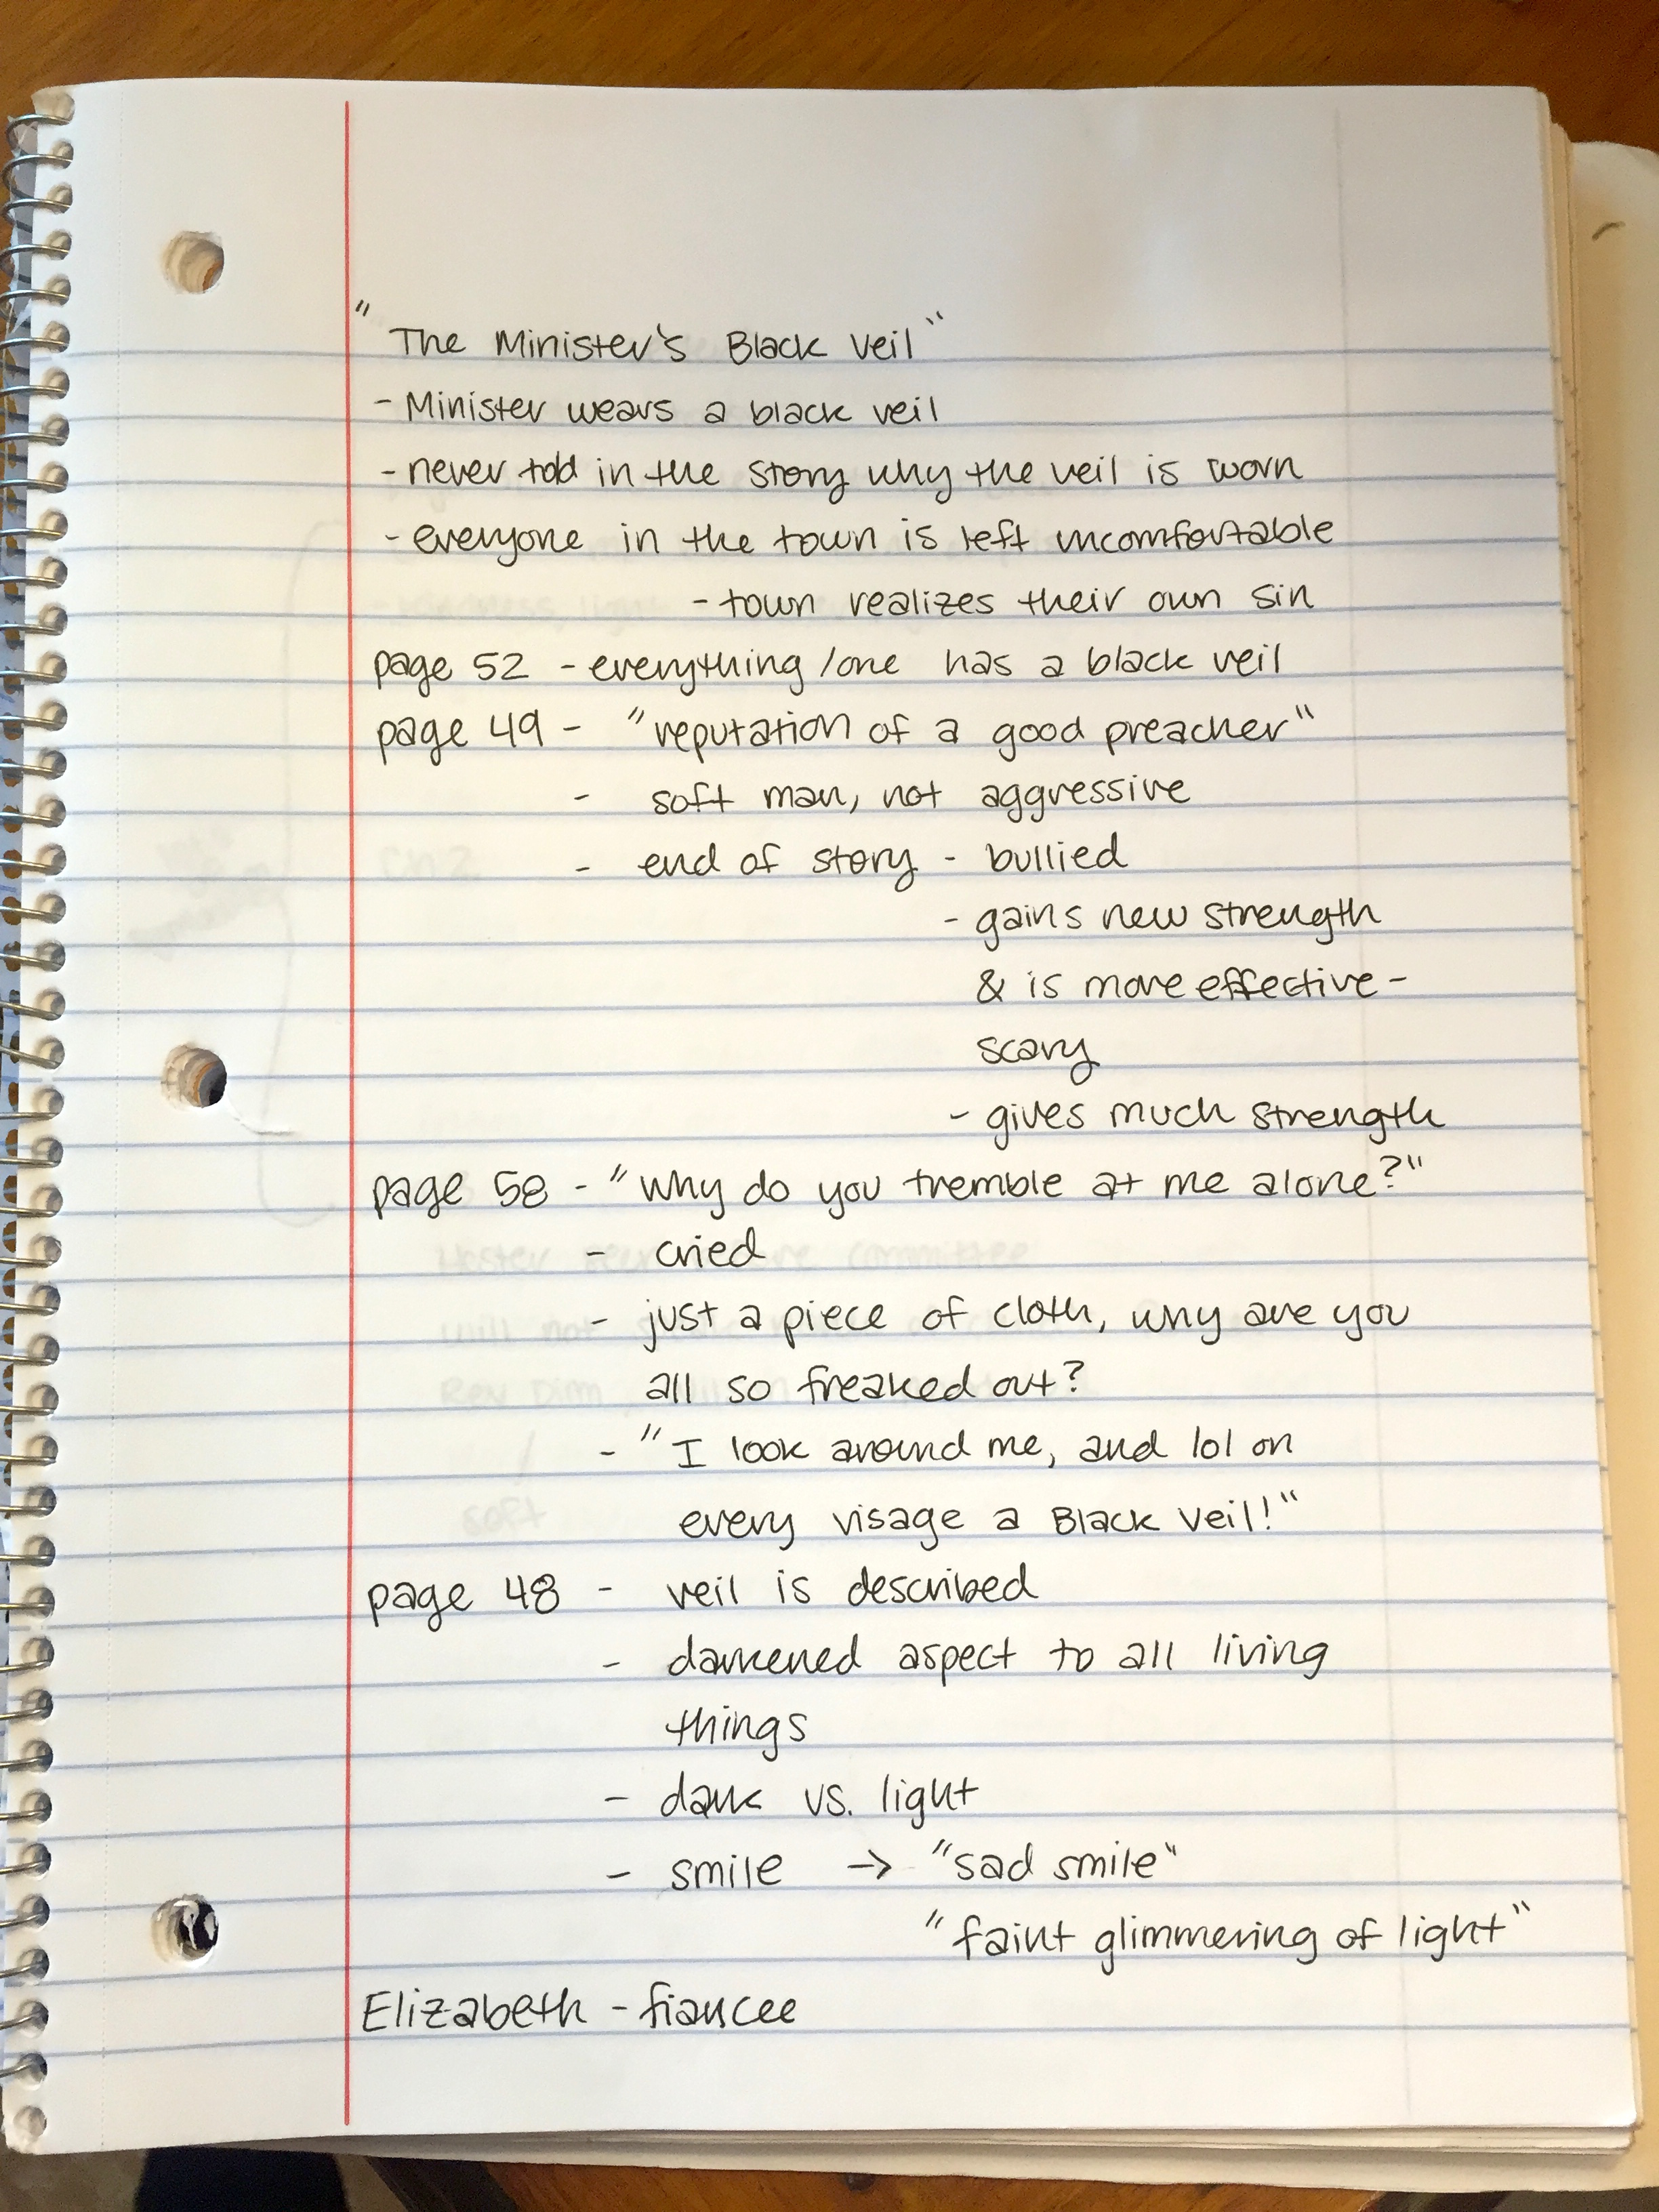 "The Minister's Black Veil"
- Minister wears a black veil
- never told in the story why the veil is worn
- everyone in the town is left uncomfortable
- town realizes their own sin
page 52 - everything/one has a black veil
page 49 - "reputation of a good preacher"
- soft man, not aggressive
- end of story - bullied
- gains new strength
& is more effective -
scary
- gives much strength
page 58 - "Why do you tremble at me alone?"
- cried
- just a piece of cloth, why are you
all so freaked out?
- "I look around me, and lo! on
every visage a Black Veil!"
page 48 - veil is described
- darkened aspect to all living
things
- dark vs. light
- smile → "sad smile"
"faint glimmering of light"
Elizabeth - fiancee